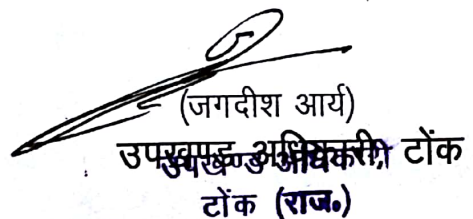 (जगदीश आर्य)
उपखण्ड अधिकारी, टोंक
उपखण्ड अधिकारी
टोंक (राज.)